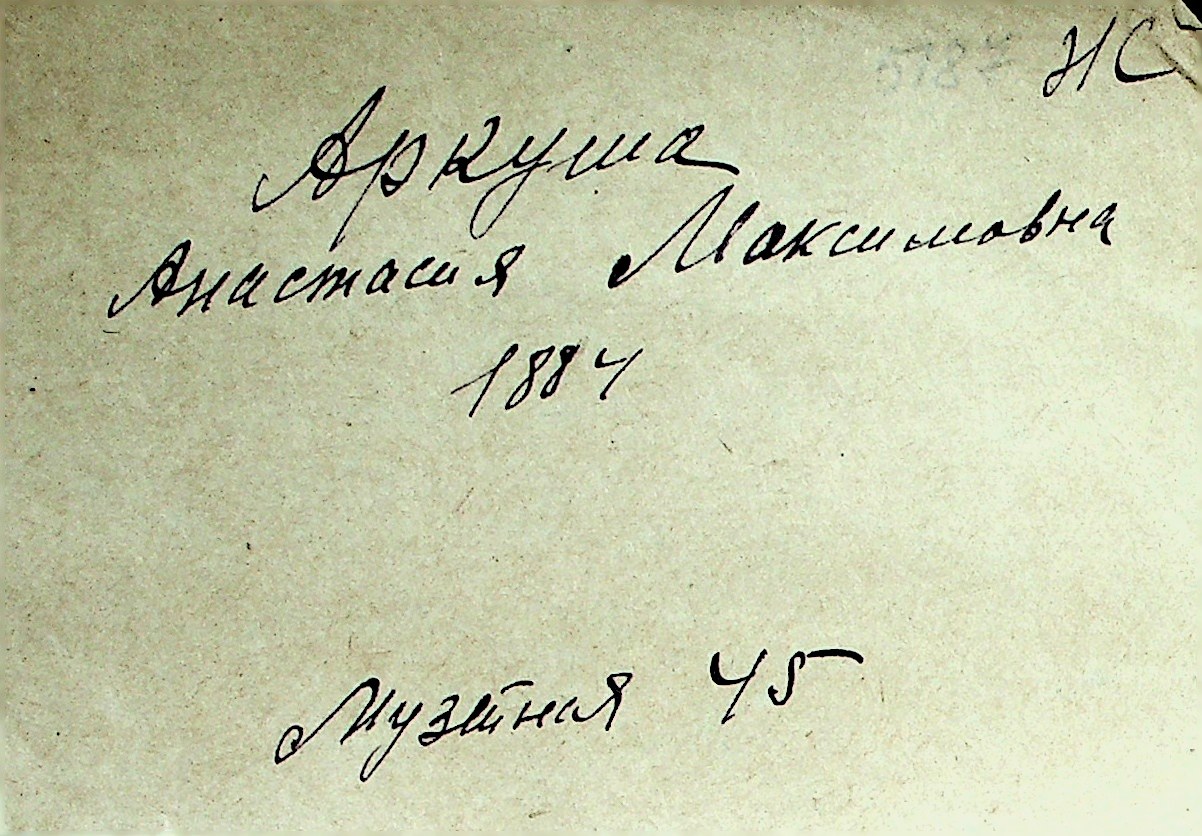 5187 НС
Аркуша
Анастасия Максимовна
1884
Музейная 45